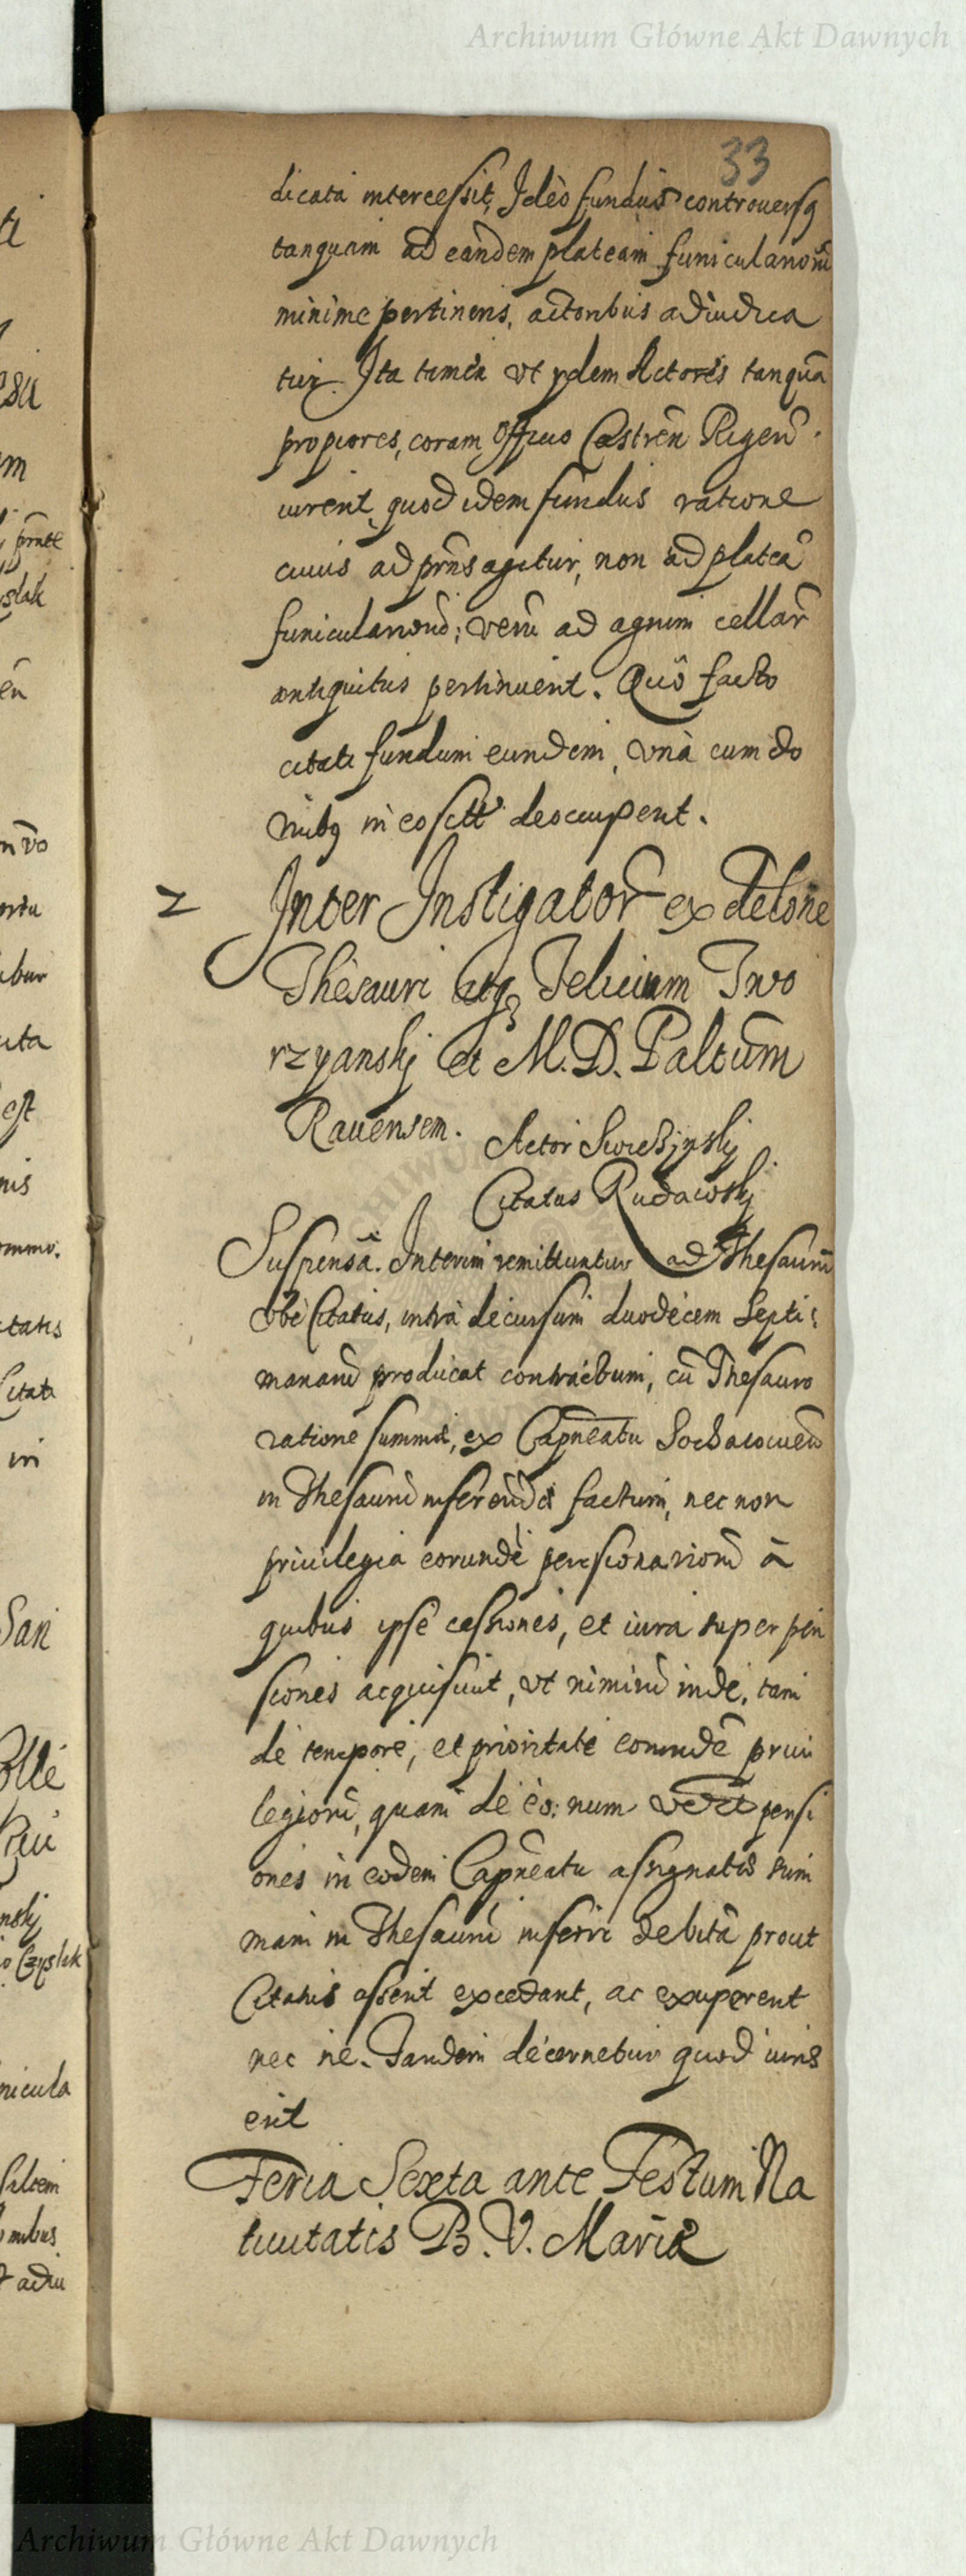 Archiwum Główne Akt Dawnych
33
dicata intercessit, Ideò fundus controversq
tanquam ad eandem plateam funiculariorū
minime pertinens, actoribus adiudica
tur. Ita tamen ut ydem Actores tanquā
propiores, coram Officio Castren̄ Rigen̄
iurent, quod idem fundus ratione
cuius ad prn̄s agitur, non ad plateā
funiculariorū, verū ad agrum cellar̄
antiquitus pertinuerit. Quô facto
citati fundum eundem, vnà cum do
mibq in eo sitt desccupent.
2 Inter Instigator̄ ex delōne
Thesauri atq Felicium Two
rzyanskj et M. D. Paltum̄
Ravensem. Actor Swiebzjnskj
Citatus Rudawskj
Suspensa. Interim remittuntur ad Thesaurū
Vbi Citatus, intrà decursum duodecem Septi
manarū producat contractum, cū Thesauro
ratione summæ, ex Capn̄eatu Sochacouien̄
in Thesaurū inferendæ factum, nec non
priuilegia eorundē pensionariorū à
quibus ipse cessiones, et iura super pen
siones acquisiuit, ut nimirū inde, tam
de tempore, et prioritate eorundē priui
legiorū, quam de eo: num pensi
ones in eodem Capn̄eatu assignatæ sum
mam in Thesaurū inferri debitā prout
Citatus asserit excedant, ac exuperent
nec ne. Tandem decernetur quod iuris
erit
Feria Sexta ante Festum Na
tiuitatis B. V. Mariæ
Archiwum Główne Akt Dawnych